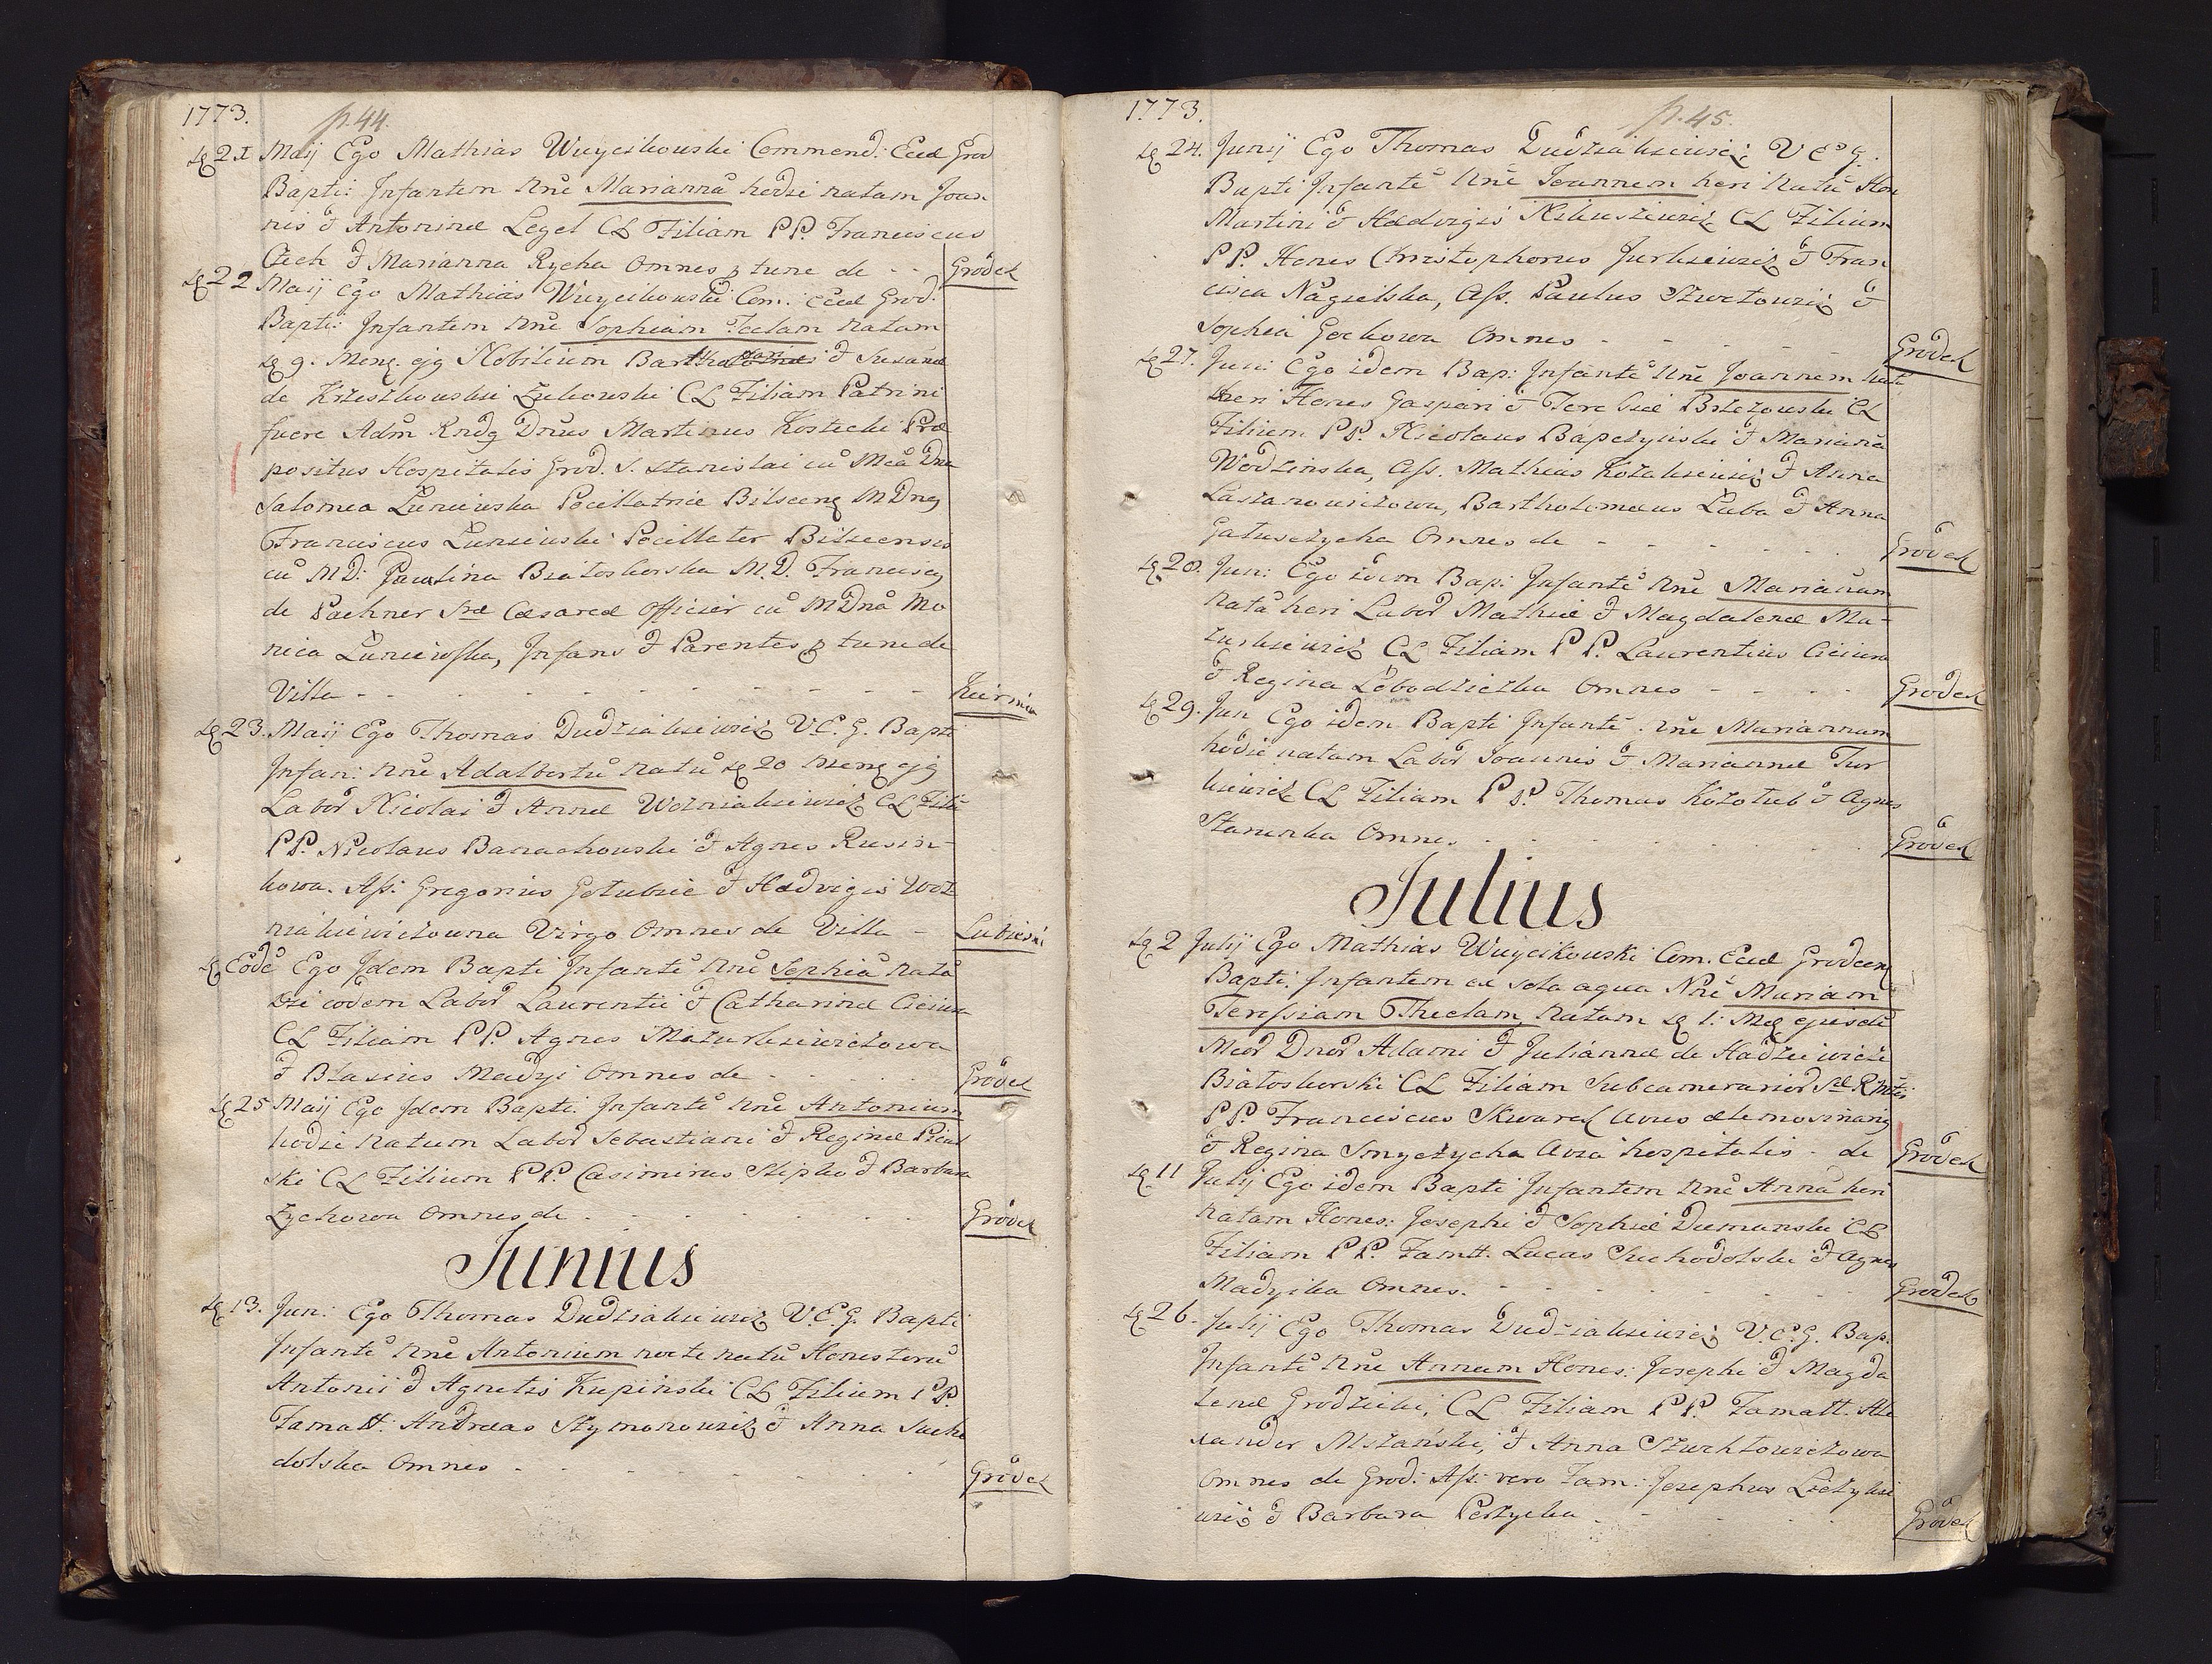 1773.
p. 44.
21 Maij Ego Mathias Wuycikowski Commend: Eccl Grod
Bapti: Infantem Nne Marianna hodie natam Joan
nis & Antoninæ Legel CL Filiam PP. Franciscus
Czech & Marianna Rycha Omnes p tunc de - -
Grodek
22 Maij Ego Mathias Wuycikowski Com: Eccl Grod:
Bapti: Infantem Nne Sophiam Teclam Natam
9. Mens. ejq Nobilium & Susannæ
de Zukowski CL Filiam Patrini
fuere Adm Rndq Dnus Martinus Kostecki Præ
positus Hospitalis Grod. S. Stanislai cu Mca Dna
Salomea Luniewska Pocillatrice Bilscenq M Dnq
Franciscus Luniewski Pocillator Bilscensis
cu M D: Paulina Białoskorska M. D. Franciscq
de Pachner Sræ Cæsareæ Officier cu M Dna Mo
nica Luniewska, Infans & Parentes p tunc de
Villa - -
23. Maij Ego Thomas Dudziakiewicz V. E. G. Bapti
Infan: Nne Adalbertu Natu 20 Mensq ejq
Labor Nicolai & Annæ Wozniakiewicz CL Filiu
PP. Nicolaus Banachowski & Agnes Rusin-
kowa. Ass: Gregorius Gołubsie & Hedvigis Woz
niakiewiczowna Virgo Omnes de Villa -
Eode Ego Idem Bapti Infante Nne Sophia Nata
Die eodem Labor Laurentii & Catharinæ
CL Filiam PP. Agnes Mazurkiewiczowa
& Blasius Madyi Omnes de - -
Grodek
25 Maij Ego Idem Bapti. Infante Nne Antonium
hodie natum Labor Sebastiani & Reginæ
ski CL Filium PP. Casimirus & Barbara
Zychowa Omnes de - -
Grodek
Junius
13. Jun: Ego Thomas Dudziakiewicz V. E. G. Bapti
Infante Nne Antonium nocte natu Honestoru
Antonii & Agnetis Kupinski CL Filium PP.
Famatt: Andreas Szymonowicz & Anna Sucho
dolska Omnes - -
Grodek
1773.
p. 45.
24. Junij Ego Thomas Dudziakiewicz V E G.
Bapti Infante Nne Joannem heri Natu Hon
Martini & Hedvigis CL Filium
PP. Hones Christophorus Jurkiewicz & Fran
cisca Nagielska, Ass. Paulus &
Sophia Gockowa Omnes - -
Grodek
27. Juni Ego idem Bap: Infante Nne Joannem natu
heri Hones Gaspari & Teresiæ Brzezowski CL
Filium PP. Nicolaus Bapczynski & Mariana
Wodzinska, Ass. Mathias Kozakiewicz & Anna
Lasianowiczowa, Bartholomæus Luba & Anna
Gałuszycha Omnes de - -
Grodek
28. Jun: Ego idem Bap: Infante Nne Marianam
nata heri Labor Mathiæ & Magdalenæ Ma-
zurkiewicz CL Filiam PP. Laurentius
& Regina Omnes - -
Grodek
29. Jun Ego idem Bapti Infante Nne Mariannam
hodie natam Labor Joannis & Mariannæ Tur
kiewicz CL Filiam PP. Thomas Kozołub & Agnes
Omnes - -
Grodek
Julius
2 Julij Ego Mathias Wuycikowski Com. Eccl Grodecenq
Bapti. Infantem ex sola aqua Nne Mariam
Teressiam Theclam, Natam 1: Msq ejusde
Mcor Dnor Adami & Juliannæ de
Białoskorski CL Filiam Subcamerarior
PP. Franciscus Skwarek Avus elemosinariq
& Regina Smyczycha Avia hospitalis - de
Grodek
11 Julij Ego idem Bapti Infantem Nne Anna heri
natam Hones: Josephi & Sophiæ Dumanski CL
Filiam PP. Famtt. Lucas Suchodolski & Agnes
Madyika Omnes. - -
Grodek
26. Julij Ego Thomas Dudziakiewicz V. E. G. Bap.
Infante Nne Annam Hones: Josephi & Magda
lenæ Grodzicki, CL Filiam PP. Famatt. Ale
xander Mszanski, & Anna
Omnes de Grod: Ass: vero Fam: Josephus
wicz & Barbara
Grodek